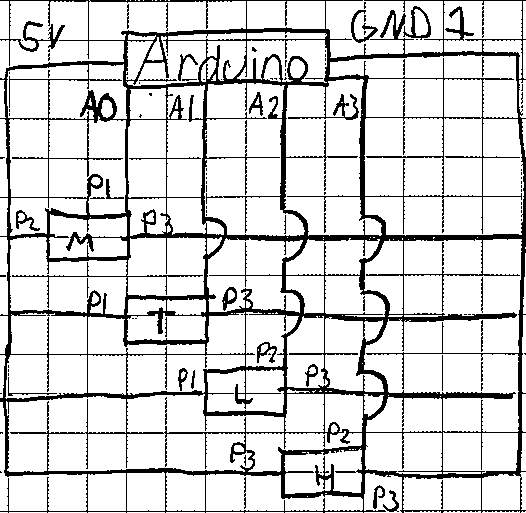 5V Arduino GND 1
A0 A1 A2 A3
P1
P2 M P3
P1 T P3
P2
P1 L P3
P2
P3 H
P3